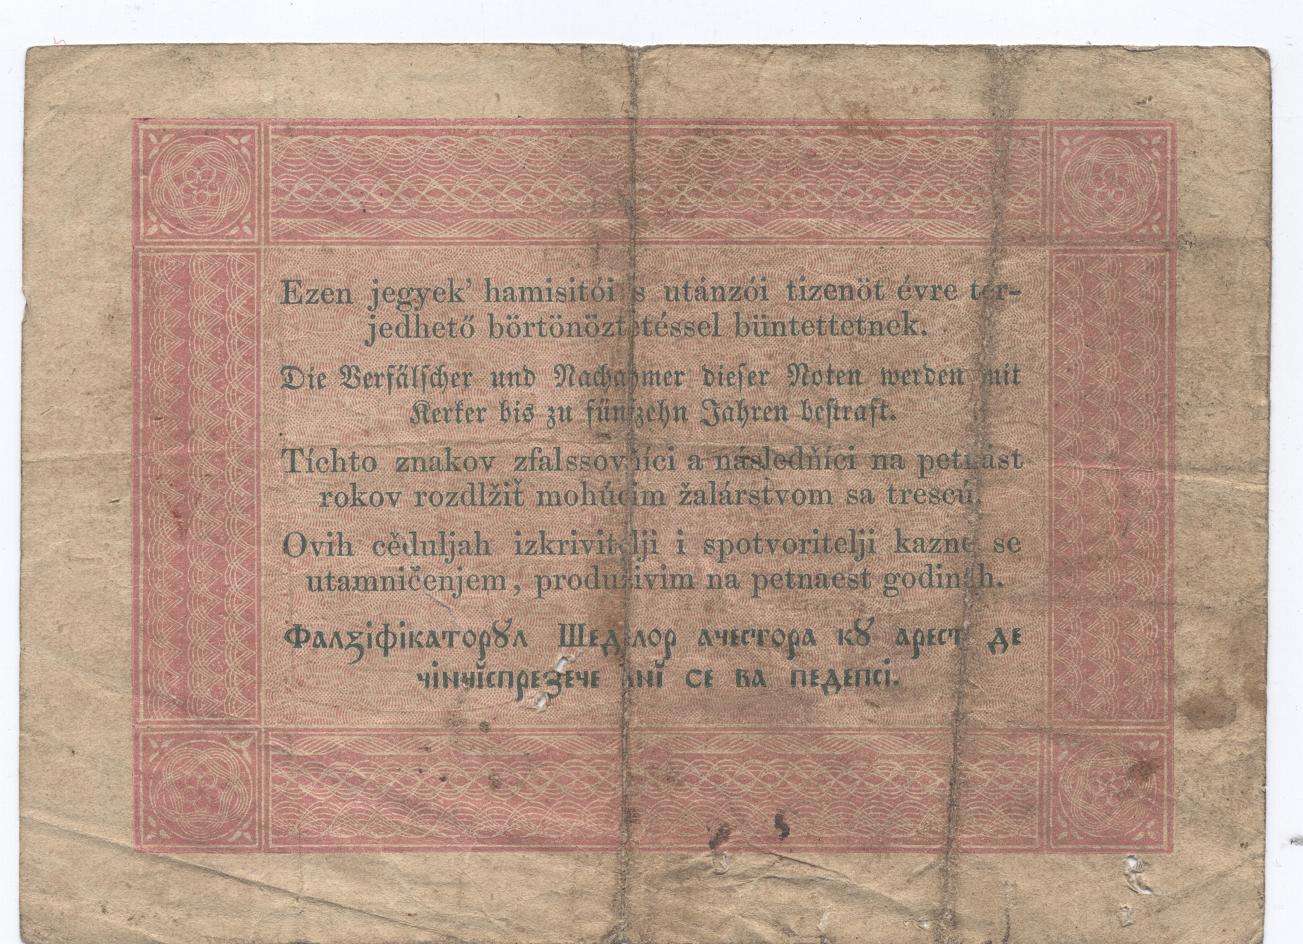 Ezen jegyek' hamisitói s utánzói tizenöt évre ter-
jedhető börtönöztetéssel büntettetnek.
Die Verfälscher und Nachahmer dieser Noten werden mit
Kerker bis zu fünfzehn Jahren bestraft.
Tíchto znakov zfalssovňíci a následňíci na petnást
rokov rozdlžiť mohúcim žalárstvom sa trescú.
Ovih cěduljah izkrivitelji i spotvoritelji kazne se
utamničenjem, produživim na petnaest godinah.
Фалзіфікаторꙋл Шеделор ачестора кꙋ арест де
чінчĭспрезече анĭ се ва педепсі.